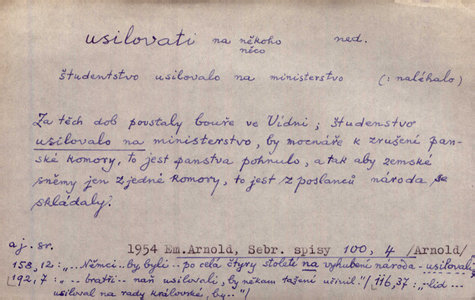 usilovati na někoho ned.
něco
študentstvo usilovalo na ministerstvo (: naléhalo)
Za těch dob povstaly bouře ve Vídni; študenstvo
usilovalo na ministerstvo, by mocnáře k zrušení pan-
ské komory, to jest panstva pohnulo, a tak aby zemské
sněmy jen z jedné komory, to jest z poslanců národa se
skládaly.
aj. sr.
1954 Em.Arnold, Sebr. spisy 100, 4 /Arnold/
158,12: „... Němci.. by byli.. po celá čtyry století na vyhubení národa - usilovali
192,7: „.. bratři.. naň usilovali, by někam tažení učinil."/ 116,37: „lid...
usiloval na rady královské, by..."